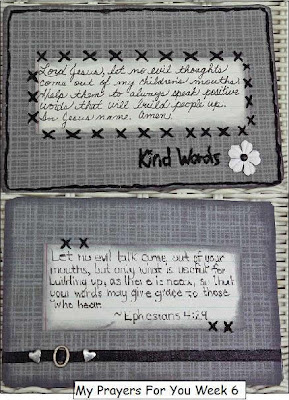 Lord Jesus, let no evil thoughts
come out of my children's mouths.
Help them to always speak positive
words that will build people up.
In Jesus name, amen.
Kind Words
Let no evil talk come out of your
mouths, but only what is useful for
building up, as there is need, so that
your words may give grace to those
who hear.
~Ephesians 4:29
My Prayers For You Week 6